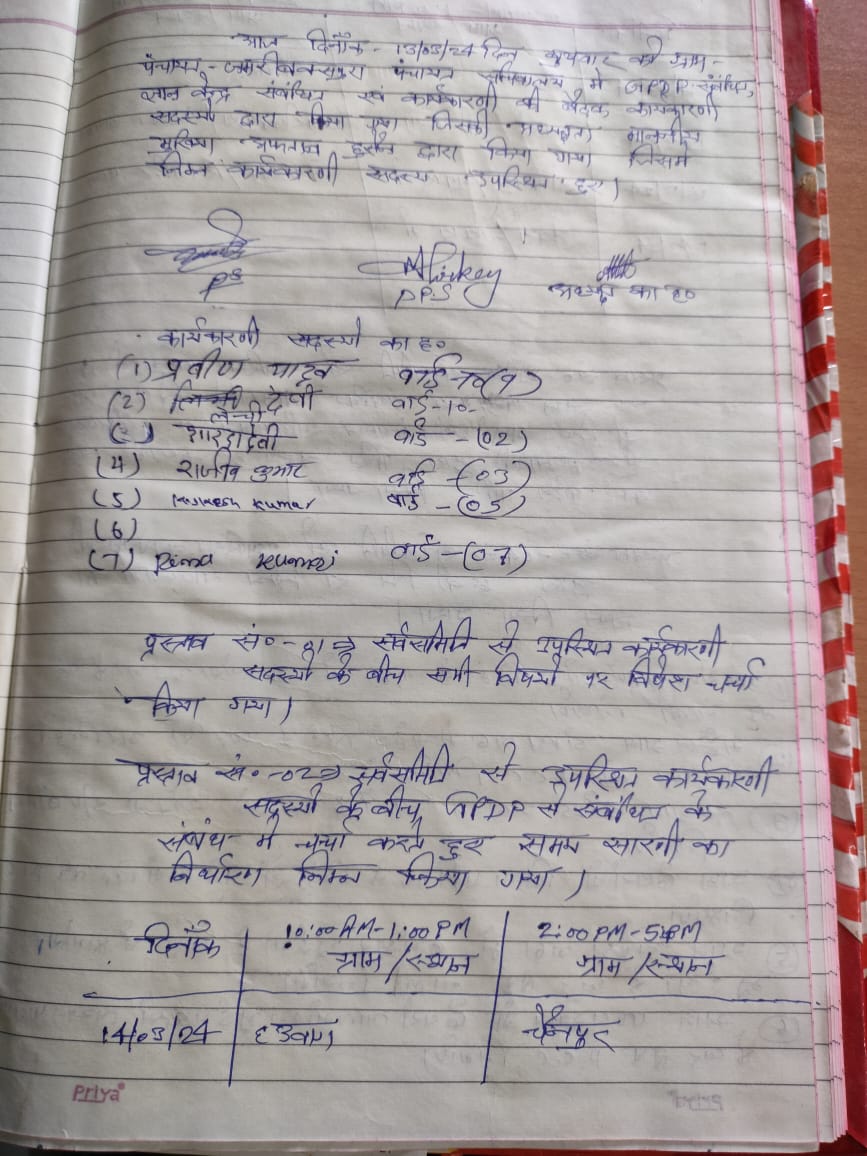 आज दिनाँक - 13/03/24 दिन बुधवार को ग्राम-
पंचायत - पंचायत सचिवालय में GPDP संबंधित,
ज्ञान केन्द्र संबंधित एवं कार्यकारणी की बैठक कार्यकारणी
सदस्यों द्वारा किया गया जिसकी अध्यक्षता माननीय
मुखिया द्वारा किया गया जिसमें
निम्न कार्यकारणी सदस्य उपस्थित हुए।
PS
DPS
अध्यक्ष का ह०
कार्यकारणी सदस्यों का ह०
(1) प्रवीण यादव वार्ड-
(2) देवी वार्ड-10-
शारदा देवी वार्ड - (02)
(4) राजीव कुमार वार्ड - (03)
(5) kumar वार्ड - (05)
(6)
(7) Rima kumari वार्ड - (07)
प्रस्ताव सं०-01 ⇒ सर्वसमिति से उपस्थित कार्यकारणी
सदस्यों के बीच सभी विषयों पर विशेश चर्चा
किया गया।
प्रस्ताव सं०-02 ⇒ सर्वसमिति से उपस्थित कार्यकारणी
सदस्यों के बीच GPDP से संबंधित के
संबंध में चर्चा करते हुए समय सारणी का
निर्धारण निम्न किया गया।
दिनाँक 10:00 AM-1:00 PM 2:00 PM-5:00PM
ग्राम/स्थान ग्राम/स्थान
14/03/24 चैनपुर
Priya